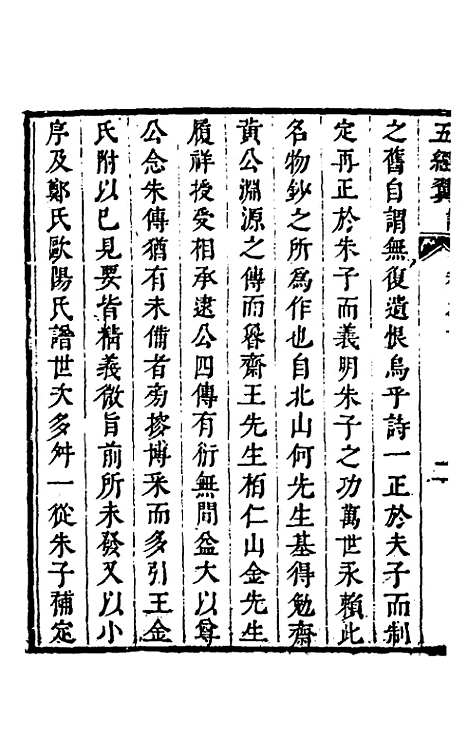 五經翼
二
之舊自謂無復遺恨烏乎詩一正於夫子而制
定再正於朱子而義明朱子之功萬世永賴此
名物鈔之所爲作也自北山何先生基得勉齋
黄公淵源之傳而魯齋王先生栢仁山金先生
履祥授受相承逮公四傳有衍無間益大以尊
公念朱傳猶有未備者旁搜博采而多引王金
氏附以已見要皆精義微旨前所未發又以小
序及鄭氏歐陽氏譜世次多舛一從朱子補定